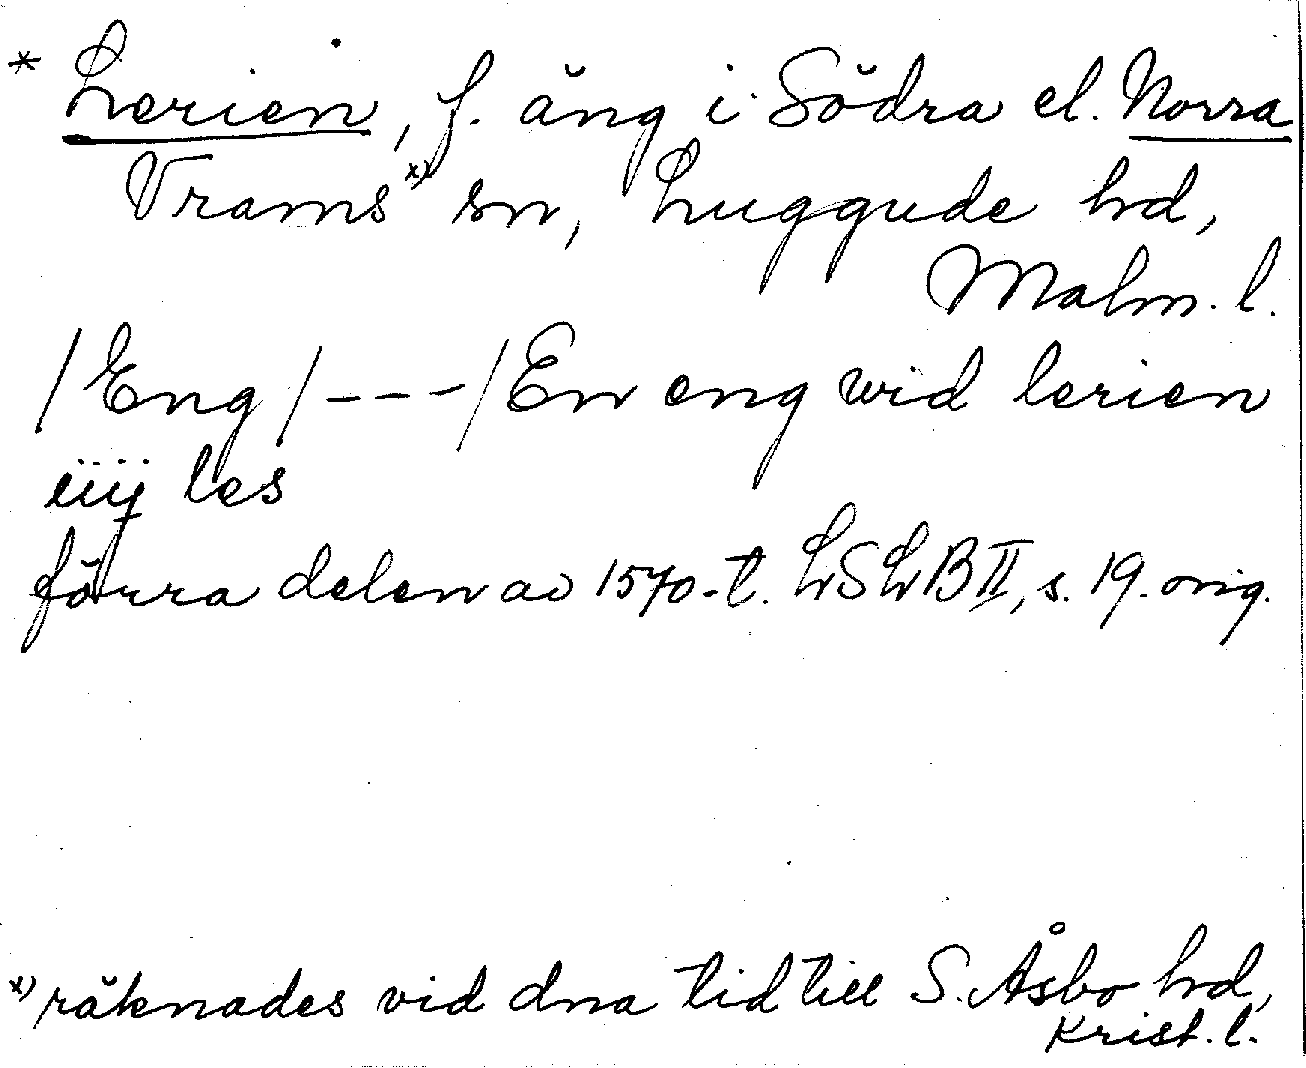 * Lerien, f. äng i Södra el. Norra
Vrams *) sn, Luggude hd,
Malm. l.
/Eng/---/En eng wid lerien
iiij les
förra delen av 1570-t. LSLB II, s. 19. orig.
*) räknades vid dna tid till S. Åsbo hd,
Krist. l.